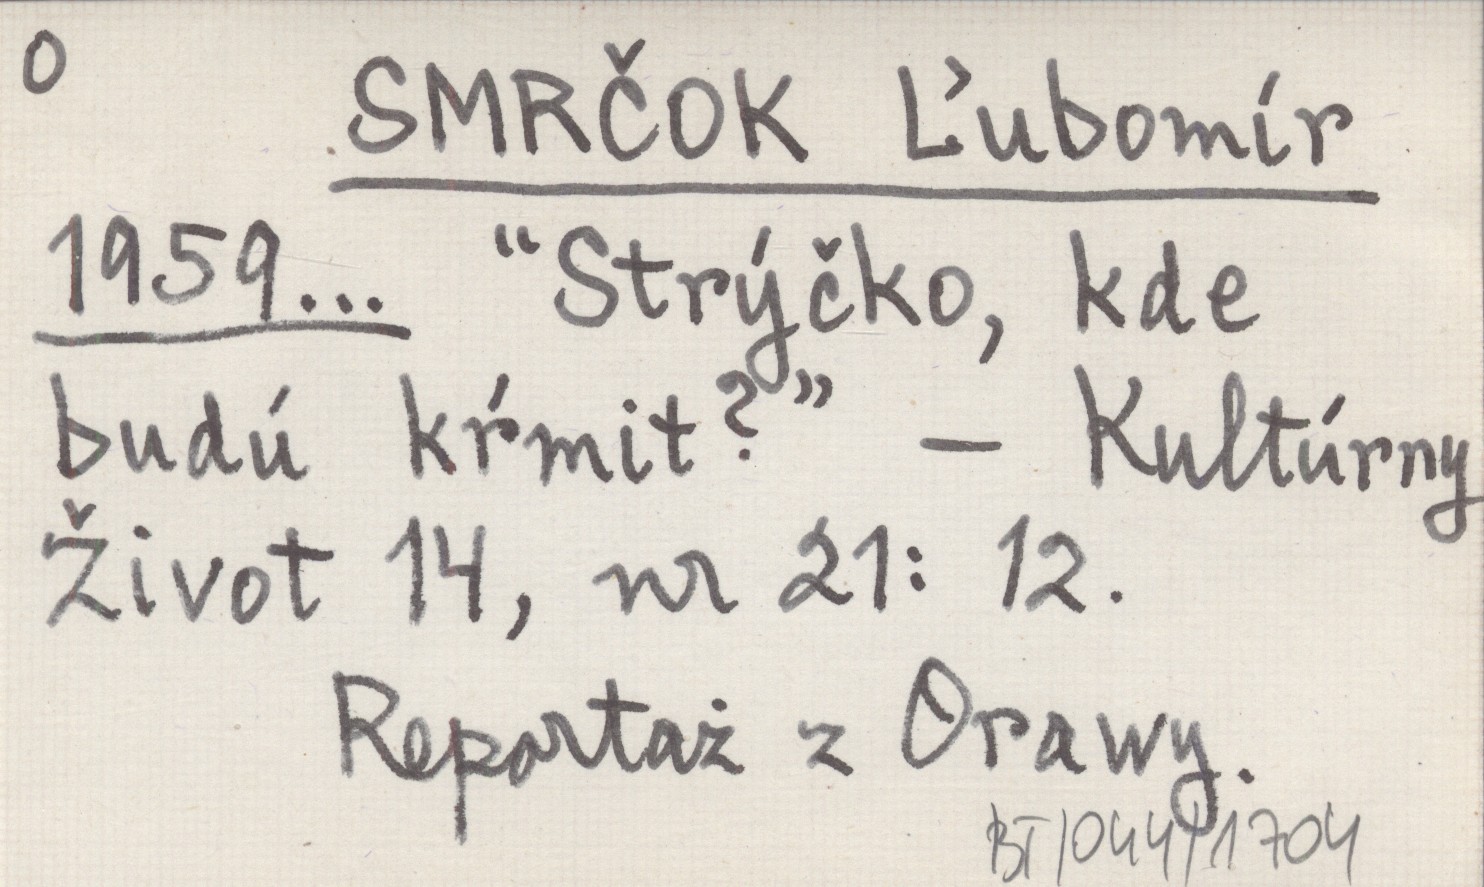 O
SMRČOK Ľubomír
1959... “Strýčko, kde
budú kŕmit?” – Kultúrny
Život 14, nr 21: 12.
Reportaż z Orawy.
BT/044/1704